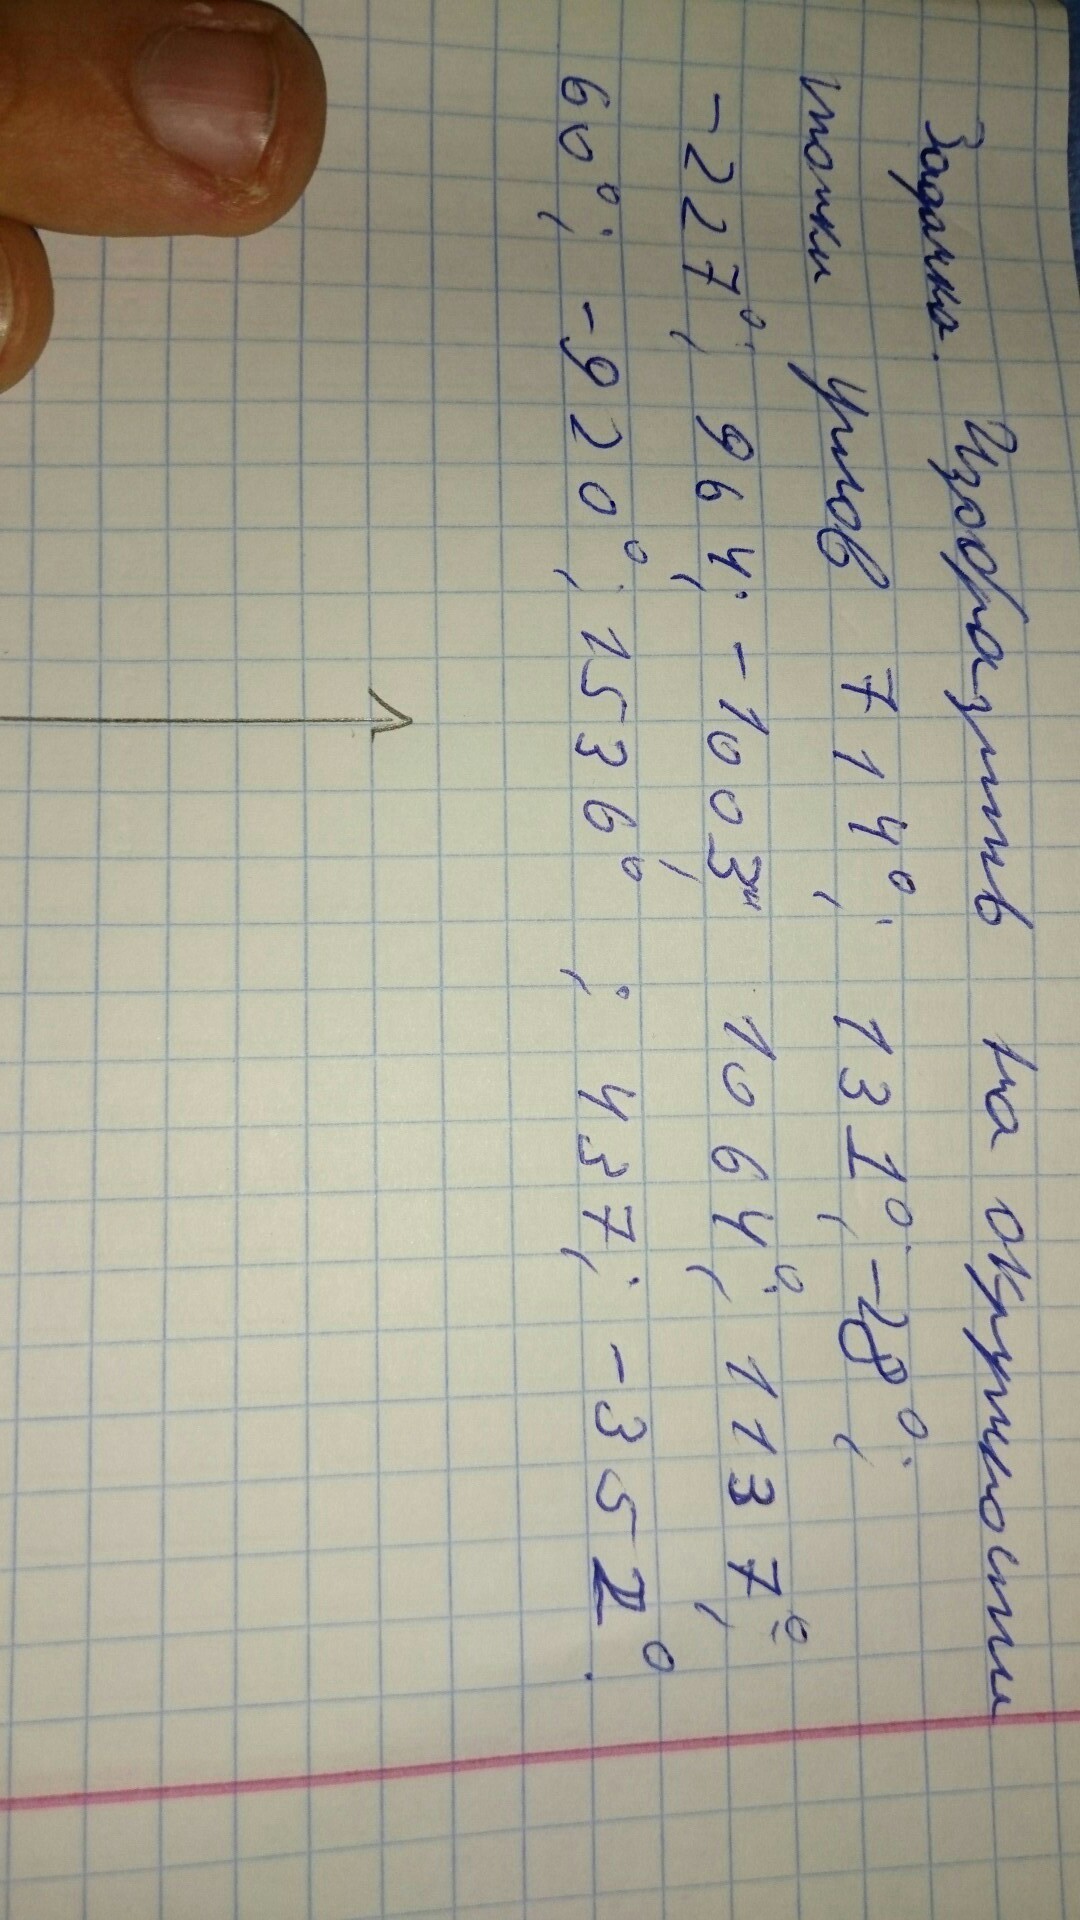 Задача. Изобразить на окружности
точки углов 714°; 131°; -28°;
-227°; 964; -1003°; 1064°; 1137°;
60°; -920°; 1536°; 437; -352°.